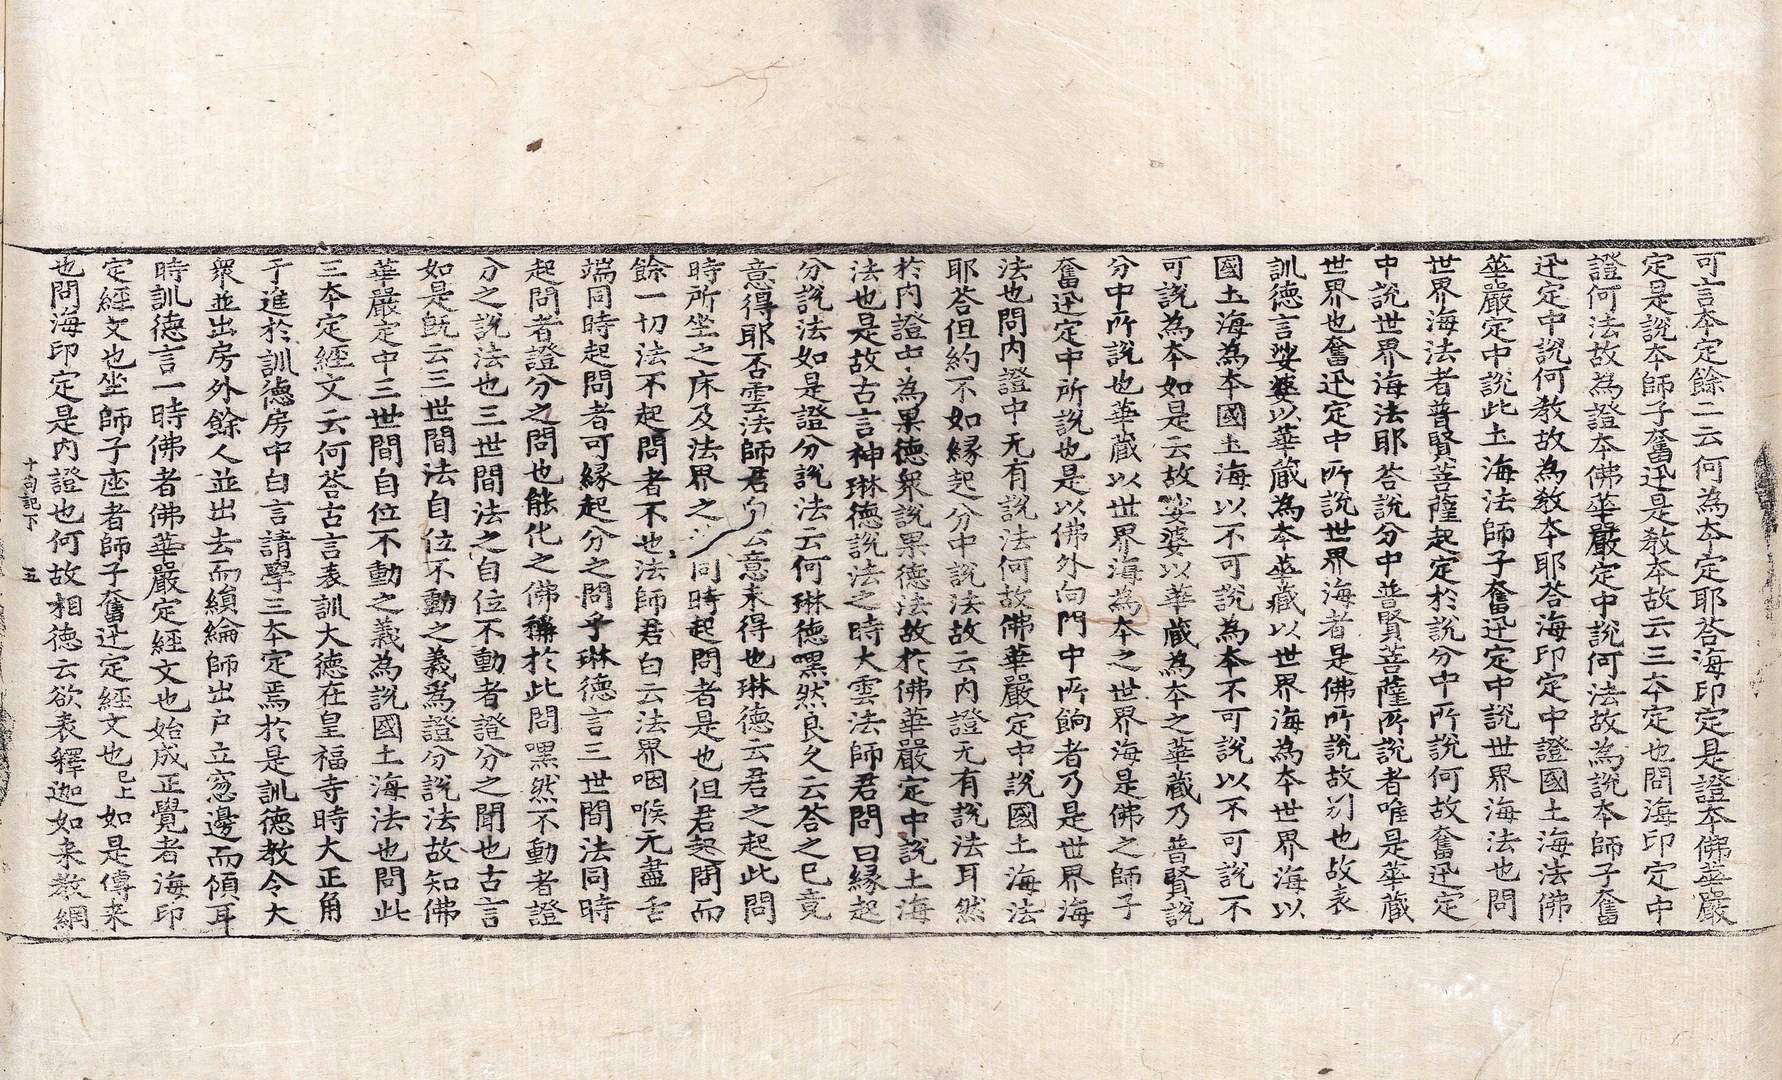 可言本定餘二云何為本定耶答海印定是證本佛華嚴
定是說本師子奮迅是教本故云三本定也問海印定中
證何法故為證本佛華嚴定中說何法故為說本師子奮
迅定中說何教故為教本耶答海印定中證國土海法佛
華嚴定中說此土海法師子奮迅定中說世界海法也問
世界海法者普賢菩薩起定於說分中所說何故奮迅定
中說世界海法耶答說分中普賢菩薩所說者唯是華藏
世界也奮迅定中所說世界海者是佛所說故別也故表
訓德言娑婆以華藏為本華藏以世界海為本世界海以
國土海為本國土海以不可說為本不可說以不可說不
可說為本如是云故娑婆以華藏為本之華藏乃普賢說
分中所說也華藏以世界海為本之世界海是佛之師子
奮迅定中所說也是以佛外向門中所餉者乃是世界海
法也問內證中无有說法何故佛華嚴定中說國土海法
耶答但約不如緣起分中說法故云內證无有說法耳然
於內證中為果德眾說果德法故於佛華嚴定中說土海
法也是故古言神琳德說法之時大雲法師君問曰緣起
分說法如是證分說法云何琳德嘿然良久云答之已竟
意得耶否雲法師君 云意未得也琳德云君之起此問
時所坐之床及法界之 同時起問者是也但君起問而
餘一切法不起問者不也法師君白云法界咽喉无盡舌
端同時起問者可緣起分之問乎琳德言三世間法同時
起問者證分之問也能化之佛稱於此問嘿然不動者證
分之說法也三世間法之自位不動者證分之聞也古言
如是旣云三世間法自位不動之義為證分說法故知佛
華嚴定中三世間自位不動之義為說國土海法也問此
三本定經文云何答古言表訓大德在皇福寺時大正角
干進於訓德房中白言請學三本定焉於是訓德教令大
眾並出房外餘人並出去而縯綸師出戶立窓邊而傾耳
時訓德言一時佛者佛華嚴定經文也始成正覺者海印
定經文也坐師子座者師子奮迅定經文也已上如是傳來
也問海印定是內證也何故相德云欲表釋迦如来教網
十句記下 五